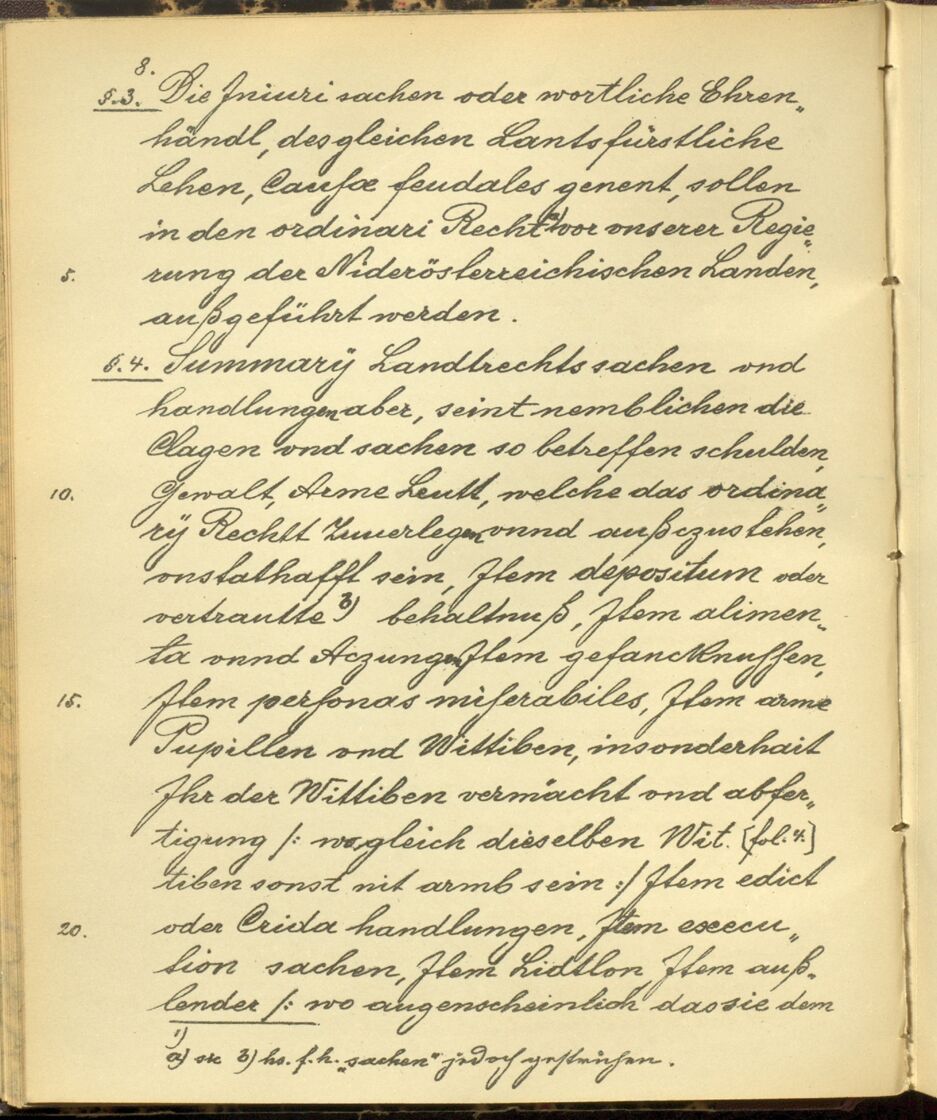 8.
§.3. Die Iniuri sachen oder wortliche Ehren„
händl, desgleichen Lantsfürstliche
Lehen, Causæ feudales genent, sollen
in den ordinari Recht a) vor vnserer Regie„
5. rung der Niderösterreichischen Landen,
außgeführt werden.
§.4. Summarÿ Landtrechts sachen vnd
handlungen aber, seint nemblichen die
Clagen vnd sachen so betreffen schulden,
10. Gewalt, Arme Leutt, welche das ordina„
rÿ Rechtt Zuuerlegen vnnd außczustehen,
vnstathafft sein, Item depositum oder
vertrautte b) behaltnuß, Item alimen„
ta vnnd Aczungen Item gefancknussen,
15. Item personas miserabiles, Item arme
Pupillen vnd Wittiben, insonderhait
Ihr der Wittiben vermächt vnd abfer„
tigung /: wogleich dieselben Wit. [fol. 4.]
tiben sonst nit armb sein :/ Item edict
20. oder Crida handlungen, Item execu„
tion sachen, Item Lidtlon Item auß„
lender /: wo augenscheinlich das sie dem
1)
a) sic b) hs. f. h. „sachen" jedoch gestrichen.